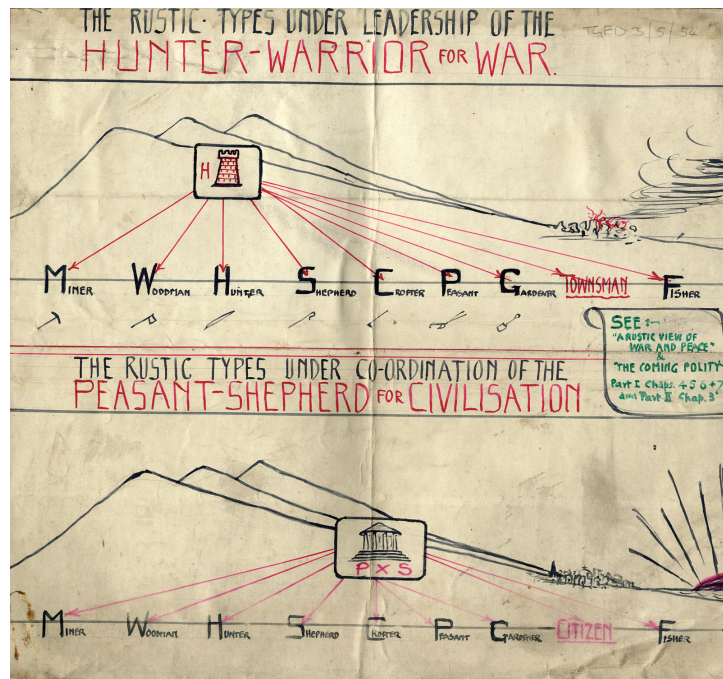 THE RUSTIC TYPES UNDER LEADERSHIP OF THE
TGED 3/5/54
HUNTER-WARRIOR FOR WAR.
H
MINER WOODMAN HUNTER SHEPHERD CROFTER PEASANT GARDENER TOWNSMAN FISHER
SEE:-
"A RUSTIC VIEW OF
WAR AND PEACE"
&
"THE COMING POLITY"
Part I Chaps. 4 5 6 + 7
and Part II Chap. 3
THE RUSTIC TYPES UNDER CO-ORDINATION OF THE
PEASANT-SHEPHERD FOR CIVILISATION
P X S
MINER WOODMAN HUNTER SHEPHERD CROFTER PEASANT GARDENER CITIZEN FISHER